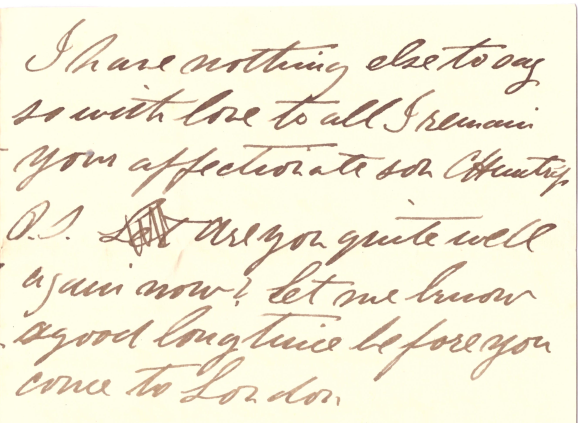 I have nothing else to say
so with love to all I remain
your affectionate son
P.S. are you quite well
again now? let me know
a good long time before you
come to London